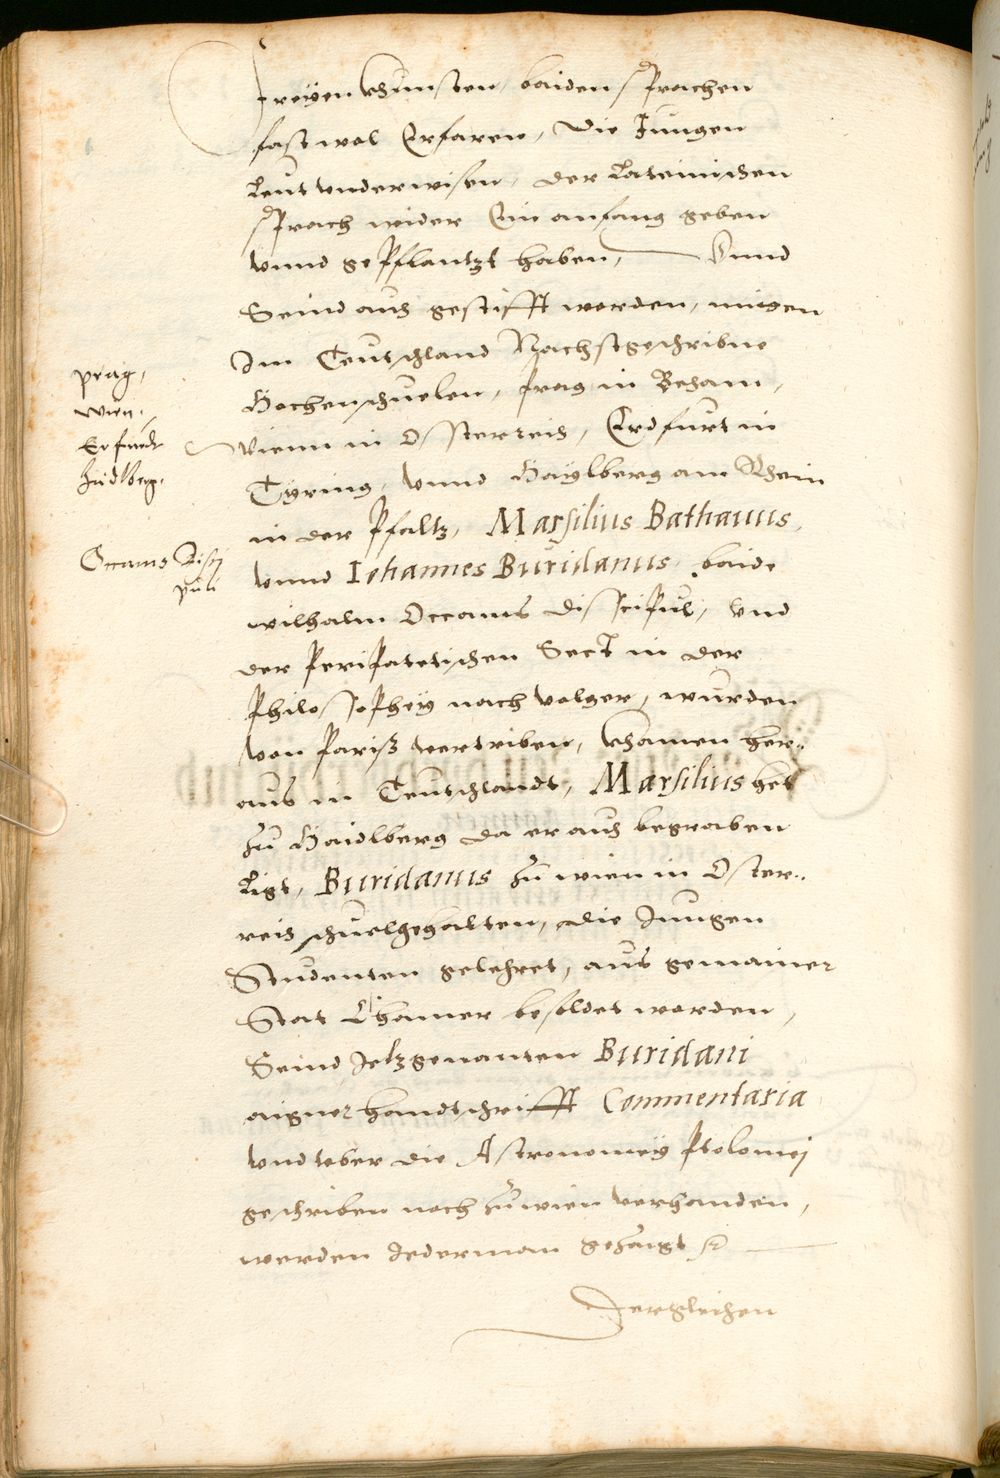 freyen khunsten, baiden sprachen
fast wol Erfaren, die Jungen
Leut underwisen, der Lateinischen
sprach wider Ein anfang geben
unnd gepflantzt haben, Unnd
Seind aus gestifft worden, mitzen
Im Teutschland Nachstgeschribne
Hochenschuelen, prag in Beham,
Wienn in Osterreich, Erdfurt in
Tyring, unnd Haylberg am Rhein
in der Pfaltz, Marsilius Bathauus,
unnd Iohannes Buridanus, baide
wilhalm Occams discipul, und
der peripatetischen Sect in der
philosophey nach volger, wurden
von pariß vertriben, khamen her..
aus in Teutschlandt, Marsilius het
zu Haidlberg da er auch begraben
Ligt, Buridanus zu wien in Oster..
reich schuel gehalten, die Jungen
Studenten gelehret, aus gemainer
Stat Chamer besoldet worden,
Seind Jetzgenanten Buridani
aigner handtschrifft Commentaria
und ueber die Astronomey ptolomej
geschriben noch zu wien verhanden,
werden Jederman gezaigt
Dergleichen
prag,
wien,
Erfurdt
Haidlberg.
Occams Disci
puli